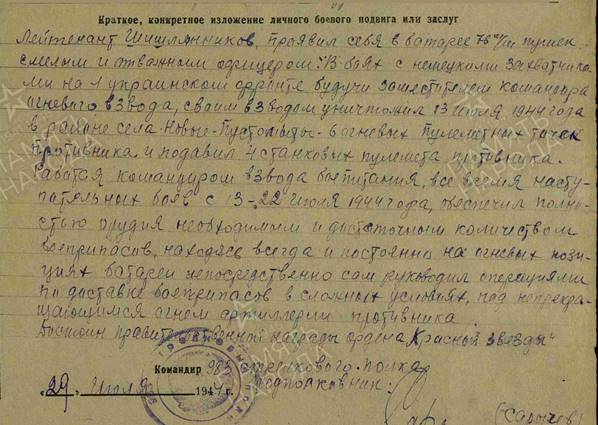 Краткое, конкретное изложение личного боевого подвига или заслуг
Лейтенант Шишлянников, проявил себя в батарее 76 м/м пушек
смелым и отважным офицером. В боях с немецкими захватчика
ми на 1 украинском фронте будучи заместителем командира
огневого взвода, своим взводом уничтожил 13 июля 1944 года
в районе села Новые-Пустомыты - 6 огневых пулеметных точек
противника и подавил 4 станковых пулемета противника.
Работая командиром взвода боепитания, все время насту-
пательных боев с 13-22 июля 1944 года, обеспечил полно-
стью орудия необходимым и достаточным количеством
боеприпасов, находясь всегда и постоянно на огневых пози-
циях батареи непосредственно сам руководил операциями
по доставке боеприпасов в сложных условиях, под непрекра-
щающимся огнем артиллерии противника.
Достоин правительственной награды ордена "Красной звезды"
Командир стрелкового полка
подполковник:
"29" июля 1944 г.
(Сарычев)
ПАМЯТЬ НАРОДА